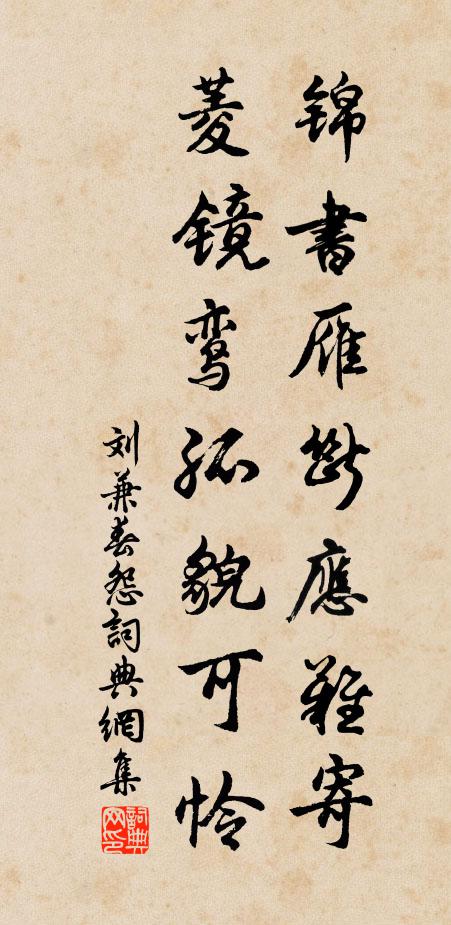 锦書雁斷應難寄
菱镜鸾孤貌可怜
刘兼春怨詞典網集
詞典网印